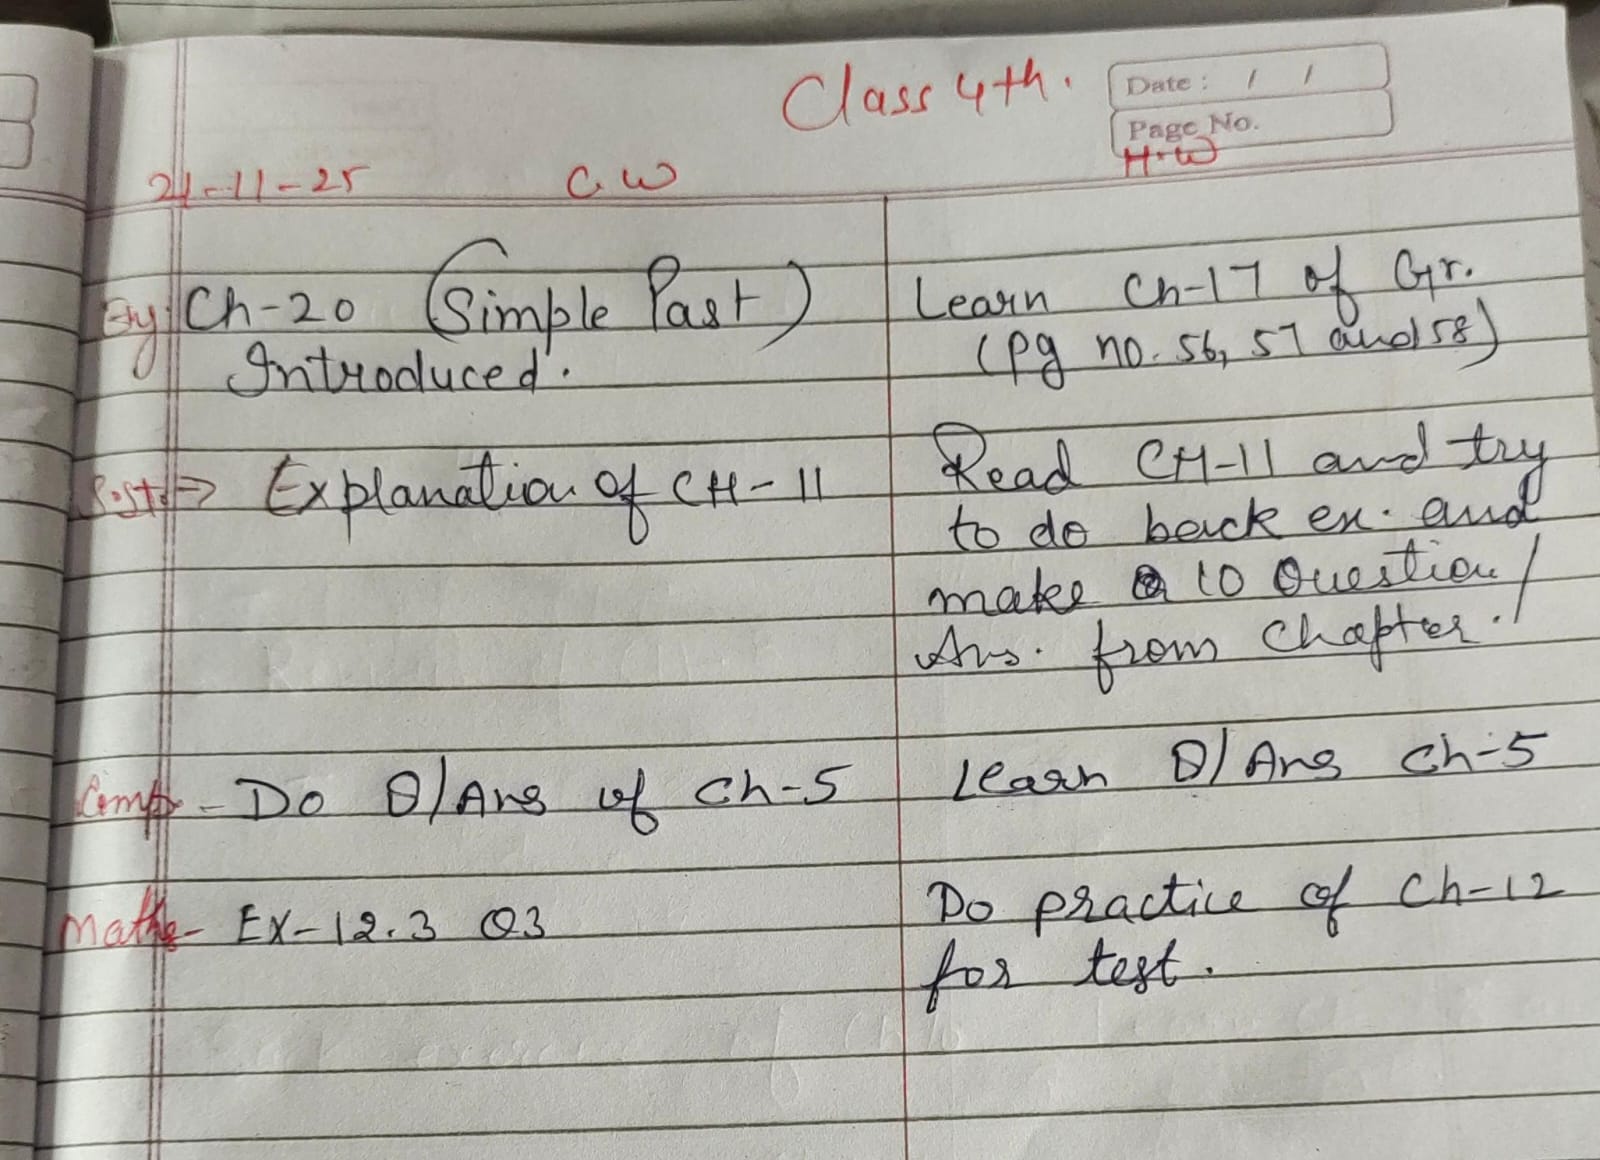 Class 4th.
Date : / /
Page No.
21-11-25 C.W H.W
Ch-20 (Simple Past)
Introduced.
Learn Ch-17 of Gr.
(pg no. 56, 57 and 58)
Explanation of CH-11
Read CH-11 and try
to do back ex. and
make 10 Question/
Ans. from Chapter.
Comp - Do Q/Ans of Ch-5
Learn Q/Ans Ch-5
Maths - EX-12.3 Q3
Do practice of Ch-12
for test.